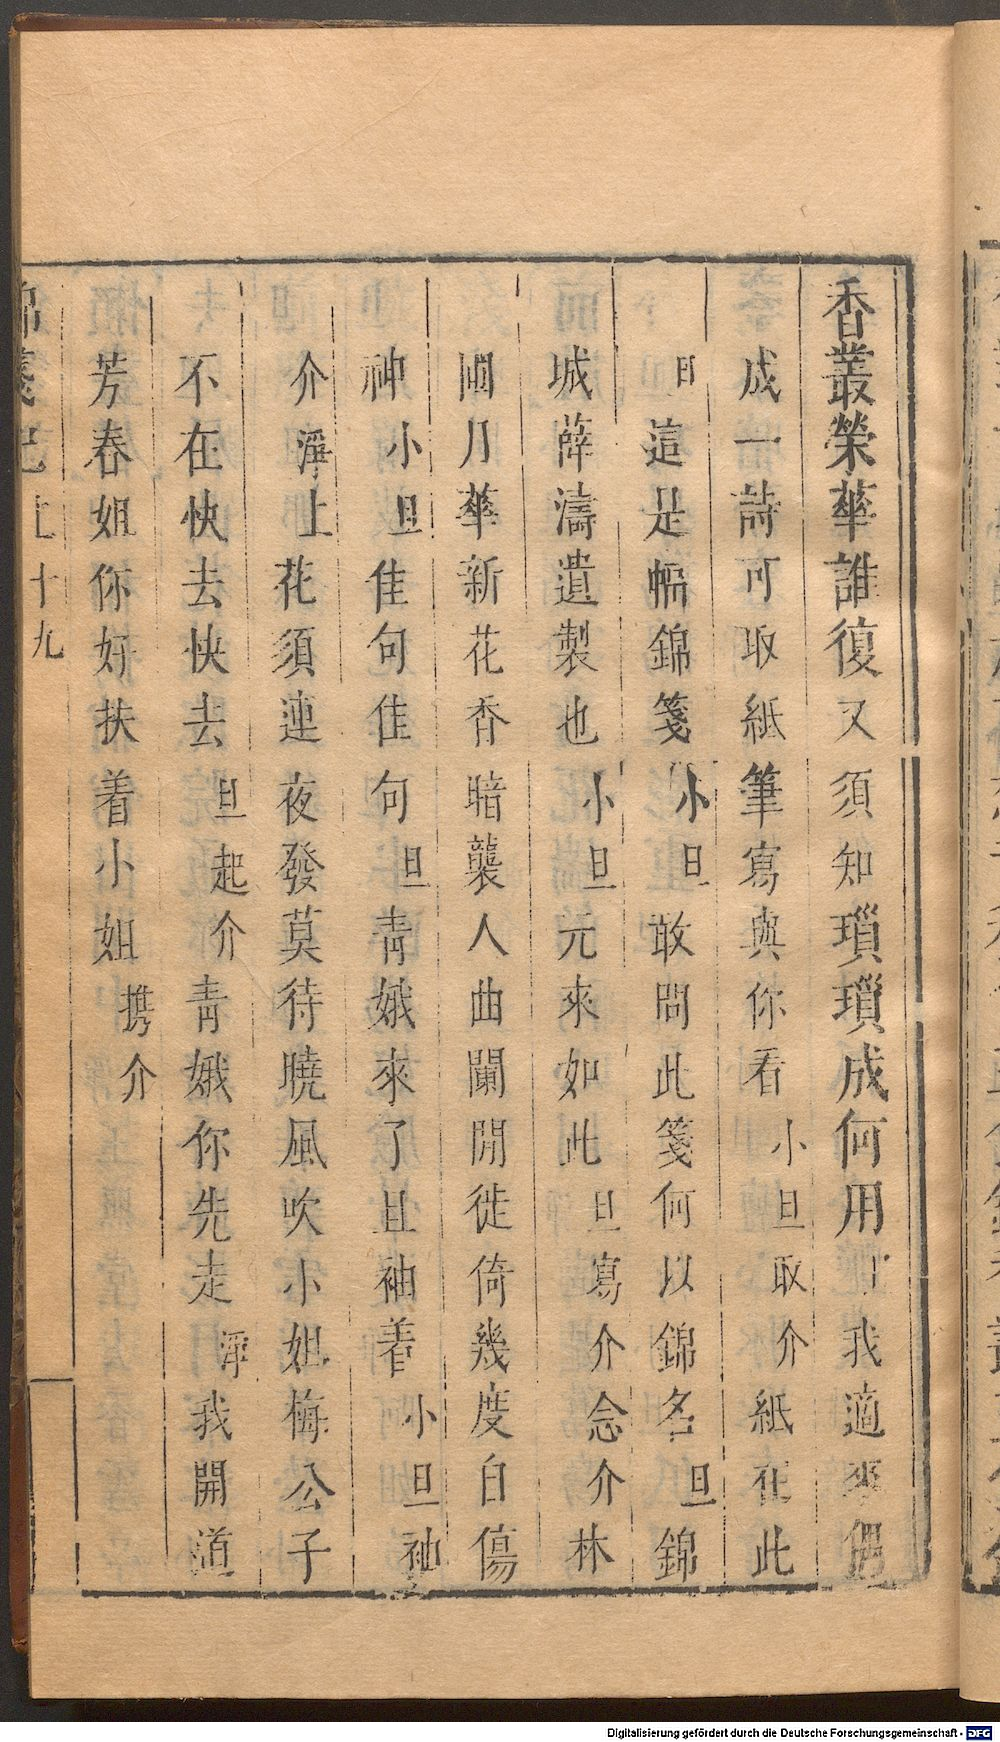 香叢榮華誰復又須知瑣瑣成何用丨我適來偶
成一詩可取紙筆寫與你看小旦取介紙在此
旦這是幅錦箋小旦敢問此箋何以錦名旦錦
城薛濤遺製也小旦元來如此旦寫介念介林
間月華新花香暗襲人曲闌閒徙倚幾度自傷
神小旦佳句佳句旦靑娥來了且袖着小旦袖
介淨上花須連夜發莫待曉風吹小姐梅公子
不在快去快去旦起介靑娥你先走淨我開道
芳春姐你好扶着小姐携介
錦箋記上十九
Digitalisierung gefördert durch die Deutsche Forschungsgemeinschaft - DFG